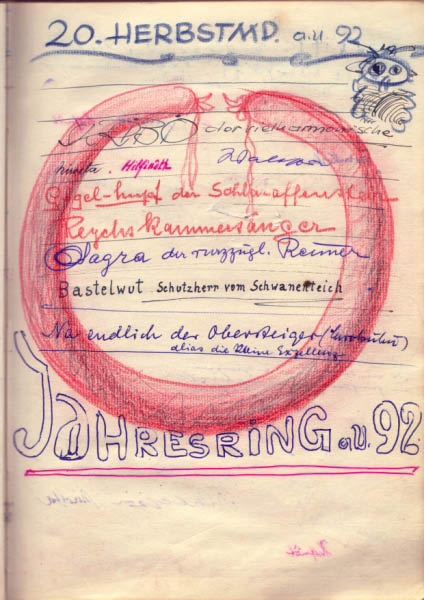 20. HERBSTMD. a.U. 92
der vielharmonische
Gugel-hupf der Schlaraffenstein
Reychskammersänger
Sagra der turzzügl. Renner
Bastelwut Schutzherr vom Schwanenteich
Na endlich der Obersteiger
alias die kleine Exzellenz
JAHRESRING a.U. 92